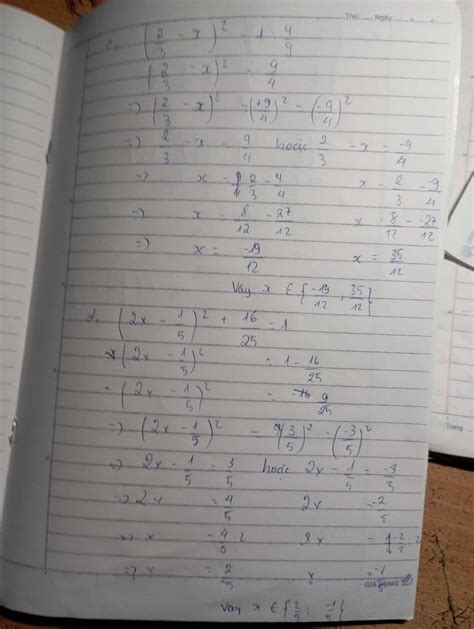 Thứ ..... Ngày ..... . ..... . .....
c, (2/3 - x)² = 1 · 4/9
(2/3 - x)² = 9/4
=) (2/3 - x)² = (+9/4)² = (-9/4)²
=) 2/3 - x = 9/4 hoặc 2/3 - x = -9/4
=) x = 2/3 - 9/4 x = 2/3 - -9/4
=) x = 8/12 - 27/12 x = 8/12 - -27/12
=) x = -19/12 x = 35/12
Vây x ∈ {-19/12, 35/12}
d, (2x - 1/5)² + 16/25 = 1
(2x - 1/5)² = 1 - 16/25
= (2x - 1/5)² = 9/25
=) (2x - 1/5)² = (3/5)² = (-3/5)²
=) 2x - 1/5 = 3/5 hoặc 2x - 1/5 = -3/5
=) 2x = 4/5 2x = -2/5
=) x = 4/5 : 2 x = -2/5 : 2
=) x = 2/5 x = -1/5
Vây x ∈ {2/5 ; -1/5}
Trang